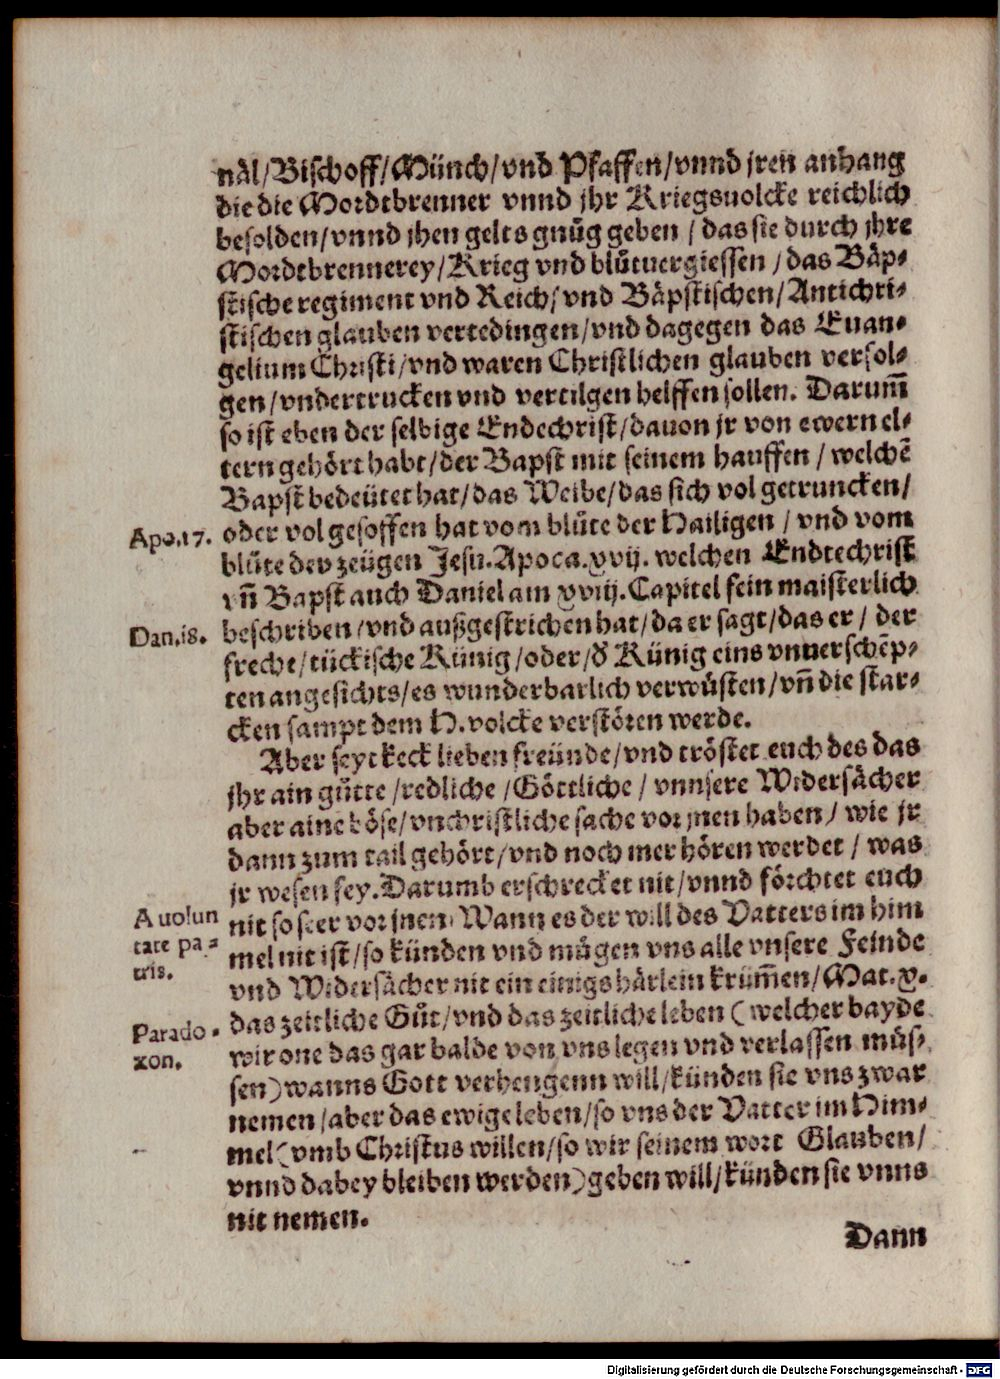 näl/Bischoff/Münch/vnd Pfaffen/vnnd jren anhang
die die Mordtbrenner vnnd jhr Kriegsuolcke reichlich
besolden/vnnd jhen gelts gnůg geben / das sie durch jhre
Mordtbrennerey/Krieg vnd blůtuergiessen / das Bäp-
stische regiment vnd Reich/vnd Bäpstischen/Antichri-
stischen glauben vertedingen/vnd dagegen das Euan-
gelium Christi/vnd waren Christlichen glauben verfol-
gen/vndertrucken vnd vertilgen helffen sollen. Darum̃
so ist eben der selbige Endechrist/dauon jr von ewern el-
tern gehört habt/der Bapst mit seinem hauffen / welchẽ
Bapst bedeütet hat/das Weibe/das sich vol getruncken/
Apo.17.
oder vol gesoffen hat vom blůte der Hailigen / vnd vom
blůte der zeügen Jesu. Apoca.xvij. welchen Endtechrist
vñ Bapst auch Daniel am xviij. Capitel fein maisterlich
Dan.i8.
beschriben/vnd außgestrichen hat/da er sagt/das er / der
freche/tückische Künig/oder/d̕ Künig eins vnuerschẽp-
ten angesichts/es wunderbarlich verwüsten/vñ die star-
cken sampt dem H.volcke verstören werde.
Aber seyt keck lieben freünde/vnd tröstet euch des das
jhr ain gůtte /redliche /Göttliche / vnnsere Widersächer
aber aine böse/vnchristliche sache vor jnen haben / wie jr
dann zum tail gehört/vnd noch mer hören werdet / was
jr wesen sey.Darumb erschrecket nit/vnnd förchtet euch
A uolun
tate pa-
tris.
nit so seer vor jnen. Wann es der will des Vatters im him
mel nit ist/so künden vnd mügen vns alle vnsere Feinde
vnd Widersächer nit ein einigs härlein krüm̃en/Mat.x.
Parado-
xon.
das zeitliche Gůt/vnd das zeitliche leben ( welcher bayde
wir one das gar balde von vns legen vnd verlassen müs-
sen)wanns Gott verhengenn will/künden sie vns zwar
nemen/aber das ewige leben/so vns der Vatter im Him-
mel(vmb Christus willen/so wir seinem wort Glauben/
vnnd dabey bleiben werden)geben will/künden sie vnns
nit nemen.
Dann
Digitalisierung gefördert durch die Deutsche Forschungsgemeinschaft - DFG